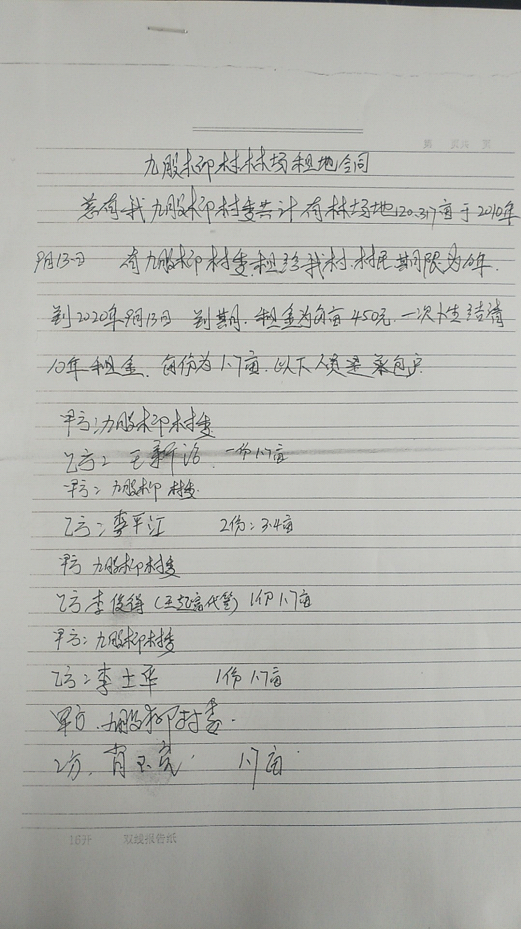 第 页共 页
九股柳村林场租地合同
兹有我九股柳村委共计有林场地120.317亩于2010年
9月13日 有九股柳村委租给我村村民期限为10年.
到2020年9月13日 到期.租金为每亩450元.一次性结清
10年租金.每份为1.7亩.以下人员是承包户
甲方:九股柳村委
乙方: 王新治 一份1.7亩
甲方: 九股柳村委.
乙方:李平江 2份:3.4亩
甲方 九股柳村委
乙方李俊得(王起富代笔)1份1.7亩
甲方:九股柳村委
乙方:李士华 1份1.7亩
甲方.九股柳村委.
乙方.肖玉亮 1.7亩
16开 双线报告纸